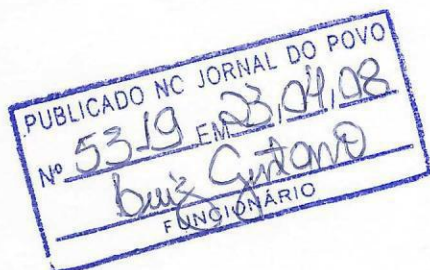 PUBLICADO NO JORNAL DO POVO
Nº 5319 EM 23,04,08
Luiz Gustavo
FUNCIONÁRIO